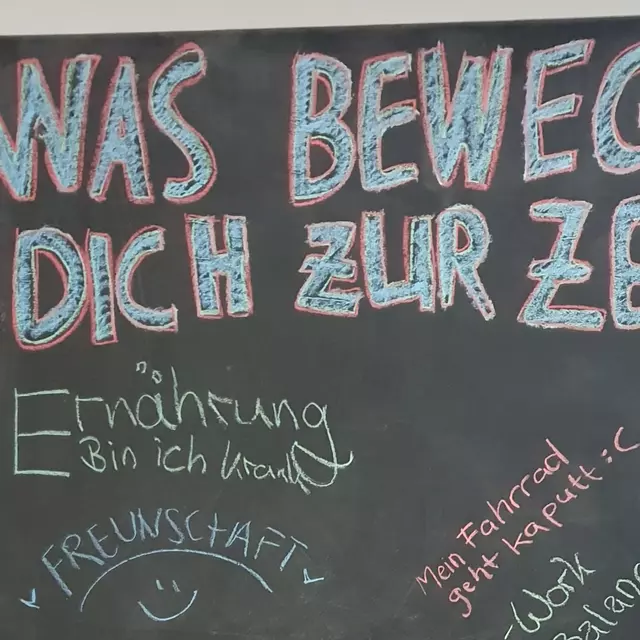 WAS BEWEG
DICH ZUR ZE
Ernährung
Bin ich krank
FREUNSCHAFT
Mein Fahrrad
geht kaputt :C
-Work
balanc